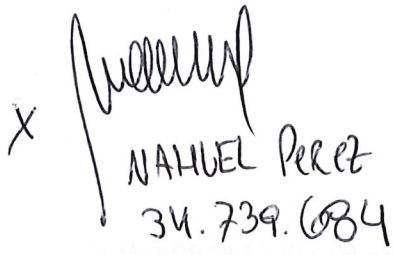 X
NAHUEL PEREZ
34.739.684